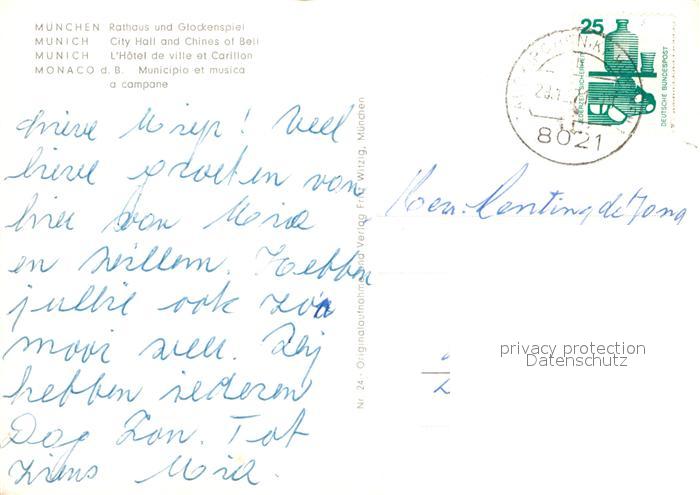 MÜNCHEN Rathaus und Glockenspiel
MUNICH City Hall and Chines of Bell
MUNICH L'Hôtel de ville et Carillon
MONACO d. B. Municipio et musica
a campane
Lieve Miep! Veel
lieve groeten van
hier van Mia
en Willem. Hebben
jullie ook zo'n
mooi weer. Wij
hebben iederen
Dag Zon. Tot
ziens Mia.
Nr. 24 - Originalaufnahme und Verlag Fritz Witzig, München
25
JEDERZEIT SICHERHEIT
DEUTSCHE BUNDESPOST
8021
privacy protection
Datenschutz